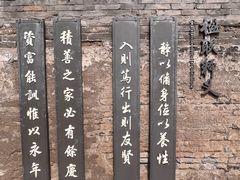 靜以脩身儉以養性
入則篤行出則友賢
積善之家必有餘慶
資富能訓惟以永年